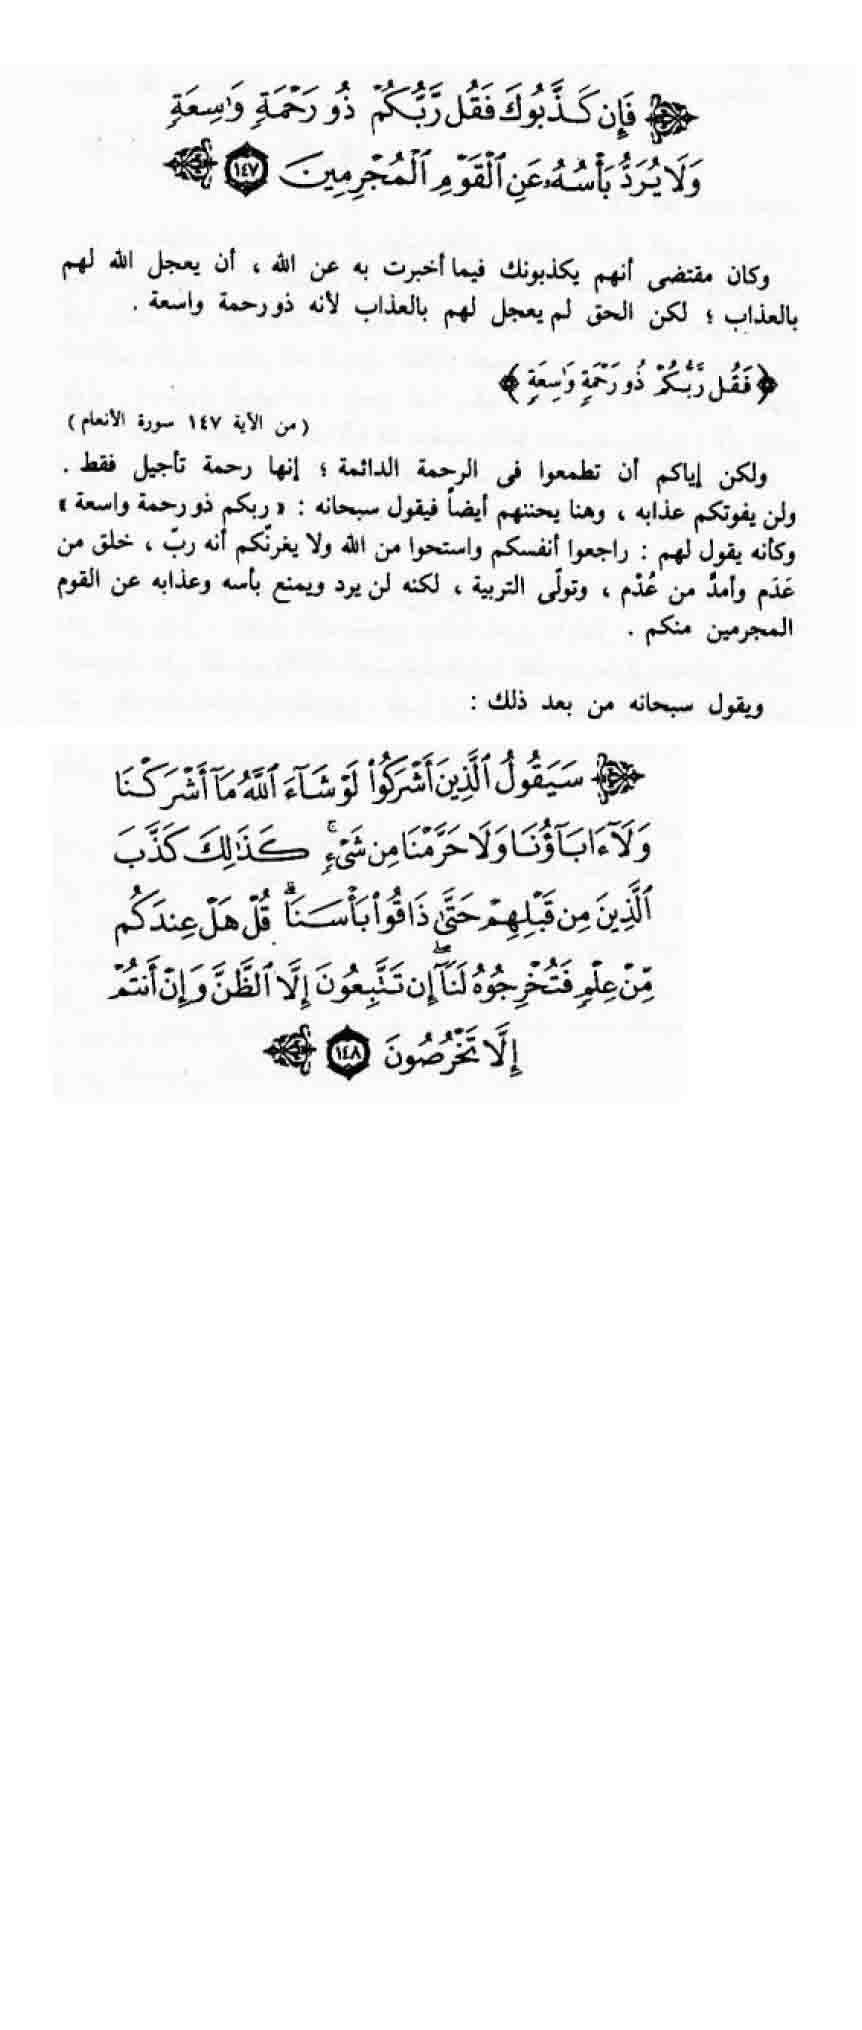 ﴿ فَإِن كَذَّبُوكَ فَقُل رَّبُّكُمْ ذُو رَحْمَةٍ وَٰسِعَةٍ
وَلَا يُرَدُّ بَأْسُهُۥ عَنِ ٱلْقَوْمِ ٱلْمُجْرِمِينَ ١٤٧ ﴾
وكان مقتضى أنهم يكذبونك فيما أخبرت به عن الله ، أن يعجل الله لهم
بالعذاب ؛ لكن الحق لم يعجل لهم بالعذاب لأنه ذو رحمة واسعة .
﴿ فَقُل رَّبُّكُمْ ذُو رَحْمَةٍ وَٰسِعَةٍ ﴾
( من الآية ١٤٧ سورة الأنعام )
ولكن إياكم أن تطمعوا فى الرحمة الدائمة ؛ إنها رحمة تأجيل فقط .
ولن يفوتكم عذابه ، وهنا يحننهم أيضاً فيقول سبحانه : « ربكم ذو رحمة واسعة »
وكأنه يقول لهم : راجعوا أنفسكم واستحوا من الله ولا يغرنّكم أنه ربّ ، خلق من
عَدَم وأمدَّ من عُدْم ، وتولّى التربية ، لكنه لن يرد ويمنع بأسه وعذابه عن القوم
المجرمين منكم .
ويقول سبحانه من بعد ذلك :
﴿ سَيَقُولُ ٱلَّذِينَ أَشْرَكُوا۟ لَوْ شَآءَ ٱللَّهُ مَآ أَشْرَكْنَا
وَلَآ ءَابَآؤُنَا وَلَا حَرَّمْنَا مِن شَىْءٍ ۚ كَذَٰلِكَ كَذَّبَ
ٱلَّذِينَ مِن قَبْلِهِمْ حَتَّىٰ ذَاقُوا۟ بَأْسَنَا ۗ قُلْ هَلْ عِندَكُم
مِّنْ عِلْمٍ فَتُخْرِجُوهُ لَنَآ ۖ إِن تَتَّبِعُونَ إِلَّا ٱلظَّنَّ وَإِنْ أَنتُمْ
إِلَّا تَخْرُصُونَ ١٤٨ ﴾